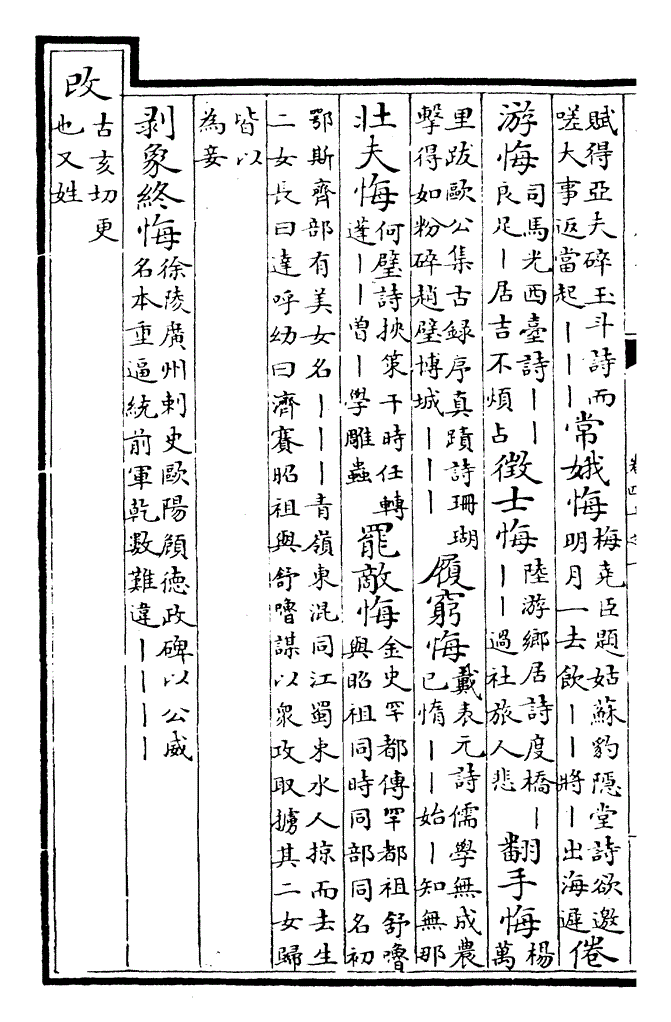 賦得亞夫碎玉斗詩而
嗟大事返當起丨丨丨
常娥悔
梅堯臣題姑蘇豹隱堂詩欲邀
明月一去飲丨丨將丨出海遲
倦
游悔
司馬光西臺詩丨丨
良足丨居吉不煩占
徵士悔
陸游鄉居詩度橋丨
丨丨過社旅人悲
翻手悔
楊
萬
里跋歐公集古録序真蹟詩珊瑚
擊得如粉碎趙璧博城丨丨丨
履窮悔
戴表元詩儒學無成農
已惰丨丨始丨知無那
壯夫悔
何璧詩挾策干時任轉
蓬丨丨曾丨學雕蟲
罷敵悔
金史罕都傳罕都祖舒嚕
與昭祖同時同部同名初
鄂斯齊部有美女名丨丨丨青嶺東混同江蜀束水人掠而去生
二女長曰達呼幼曰濟賽昭祖與舒嚕謀以衆攻取擄其二女歸
皆以
為妾
剥象終悔
徐陵廣州刺史歐陽頠德政碑以公威
名本重逼統前軍乾数難違丨丨丨丨
改
古亥切更
也又姓